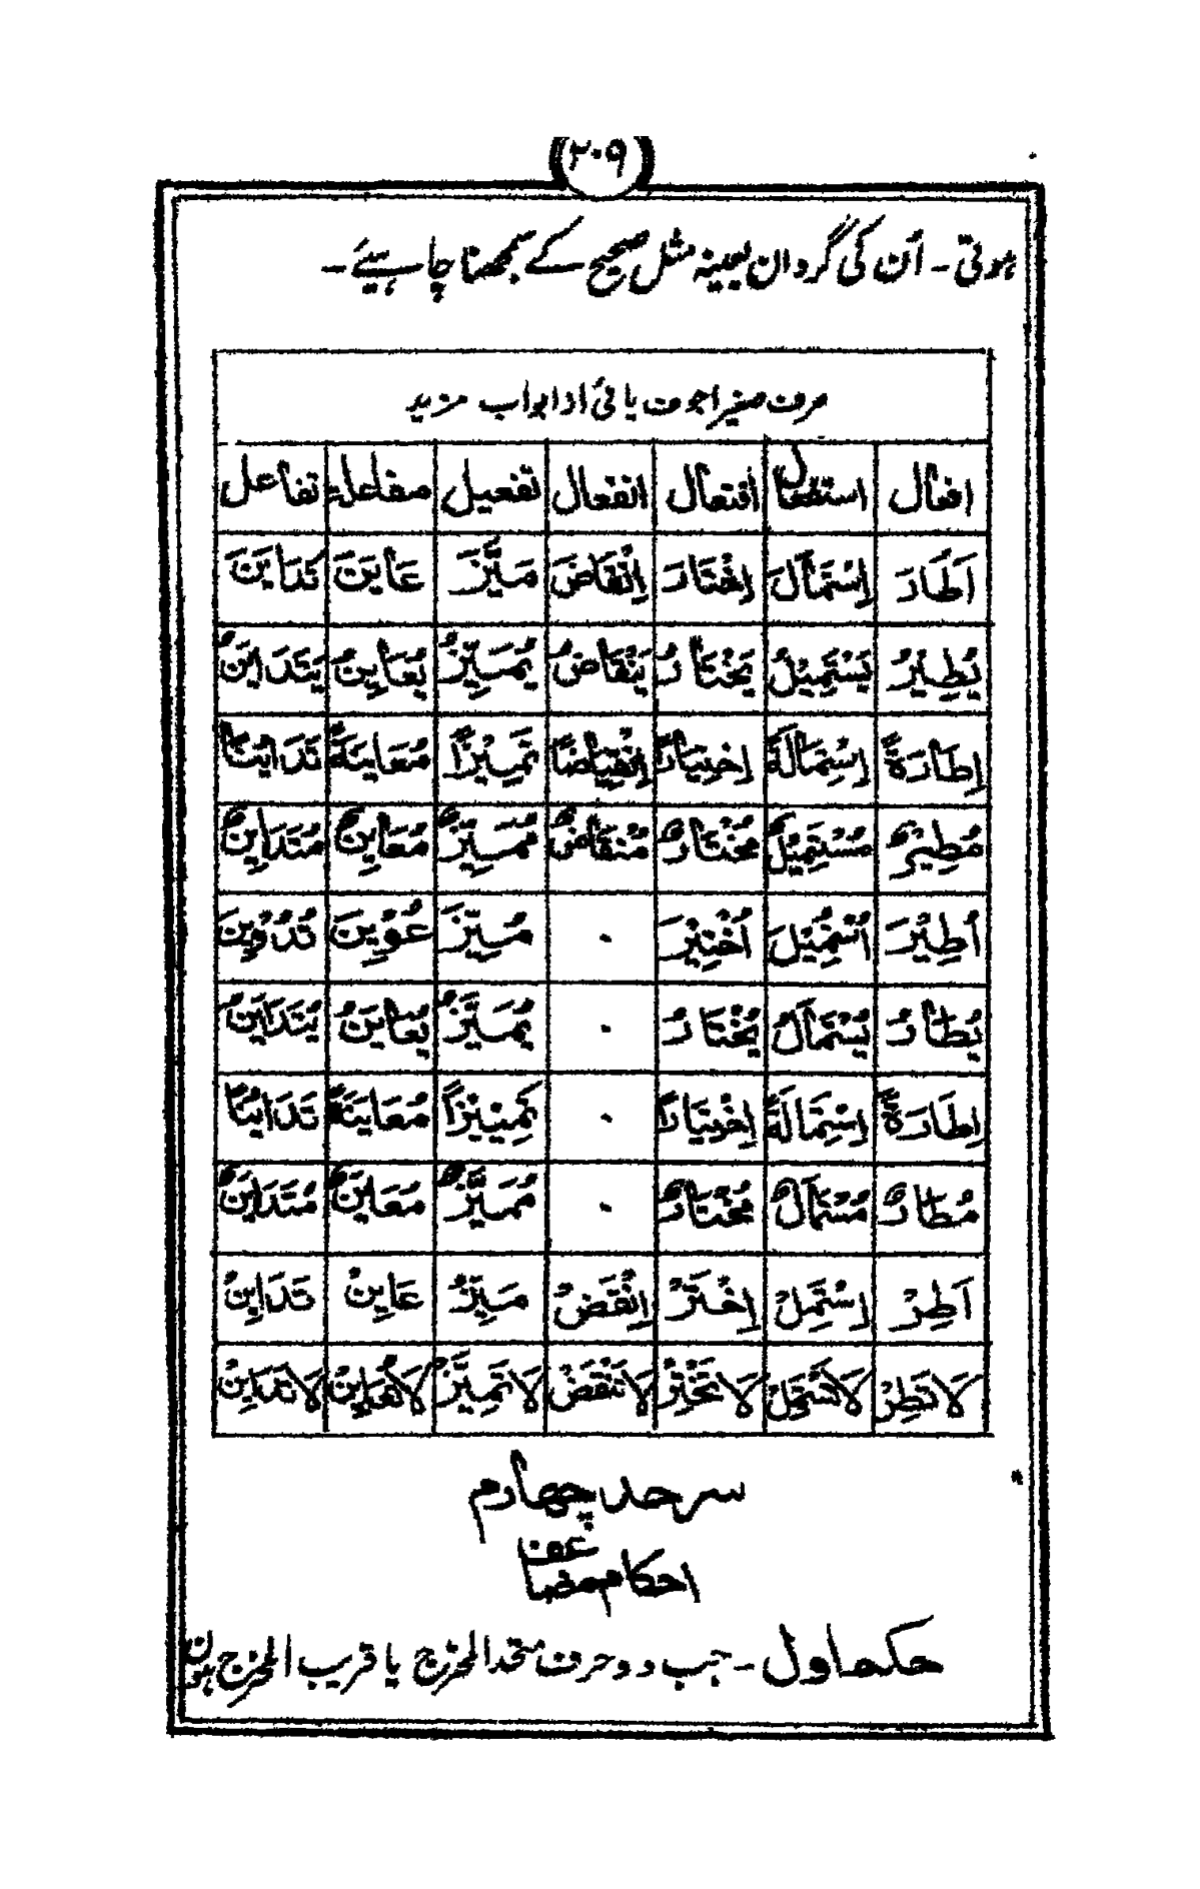 (۲۰۹)
ہوتی۔ اُن کی گردان بعینہٖ مثل صحیح کے سمجھنا چاہیئے۔
صرف صغیر اجوف یائی از ابواب مزید
افعال استفعال افتعال انفعال تفعیل مفاعلہ تفاعل
اَطَارَ اِسْتَمَالَ اِخْتَارَ اِنْقَاضَ مَیَّزَ عَایَنَ تَدَایَنَ
یُطِیْرُ یَسْتَمِیْلُ یَخْتَارُ یَنْقَاضُ یُمَیِّزُ یُعَایِنُ یَتَدَایَنُ
اِطَارَةً اِسْتِمَالَةً اِخْتِیَارًا اِنْقِیَاضًا تَمْیِیْزًا مُعَایَنَةً تَدَایُنًا
مُطِیْرٌ مُسْتَمِیْلٌ مُخْتَارٌ مُنْقَاضٌ مُمَیِّزٌ مُعَایِنٌ مُتَدَایِنٌ
اُطِیْرَ اُسْتُمِیْلَ اُخْتِیْرَ ۰ مُیِّزَ عُوْیِنَ تُدُوْیِنَ
یُطَارُ یُسْتَمَالُ یُخْتَارُ ۰ یُمَیَّزُ یُعَایَنُ یُتَدَایَنُ
اِطَارَةً اِسْتِمَالَةً اِخْتِیَارًا ۰ تَمْیِیْزًا مُعَایَنَةً تَدَایُنًا
مُطَارٌ مُسْتَمَالٌ مُخْتَارٌ ۰ مُمَیَّزٌ مُعَایَنٌ مُتَدَایَنٌ
اَطِرْ اِسْتَمِلْ اِخْتَرْ اِنْقَضْ مَیِّزْ عَایِنْ تَدَایَنْ
لَا تُطِرْ لَا تَسْتَمِلْ لَا تَخْتَرْ لَا تَنْقَضْ لَا تُمَیِّزْ لَا تُعَایِنْ لَا تَدَایَنْ
سرحد چہارم
احکام مضاعف
حکم اول۔ جب دو حرف متحد المخرج یا قریب المخرج ہوں